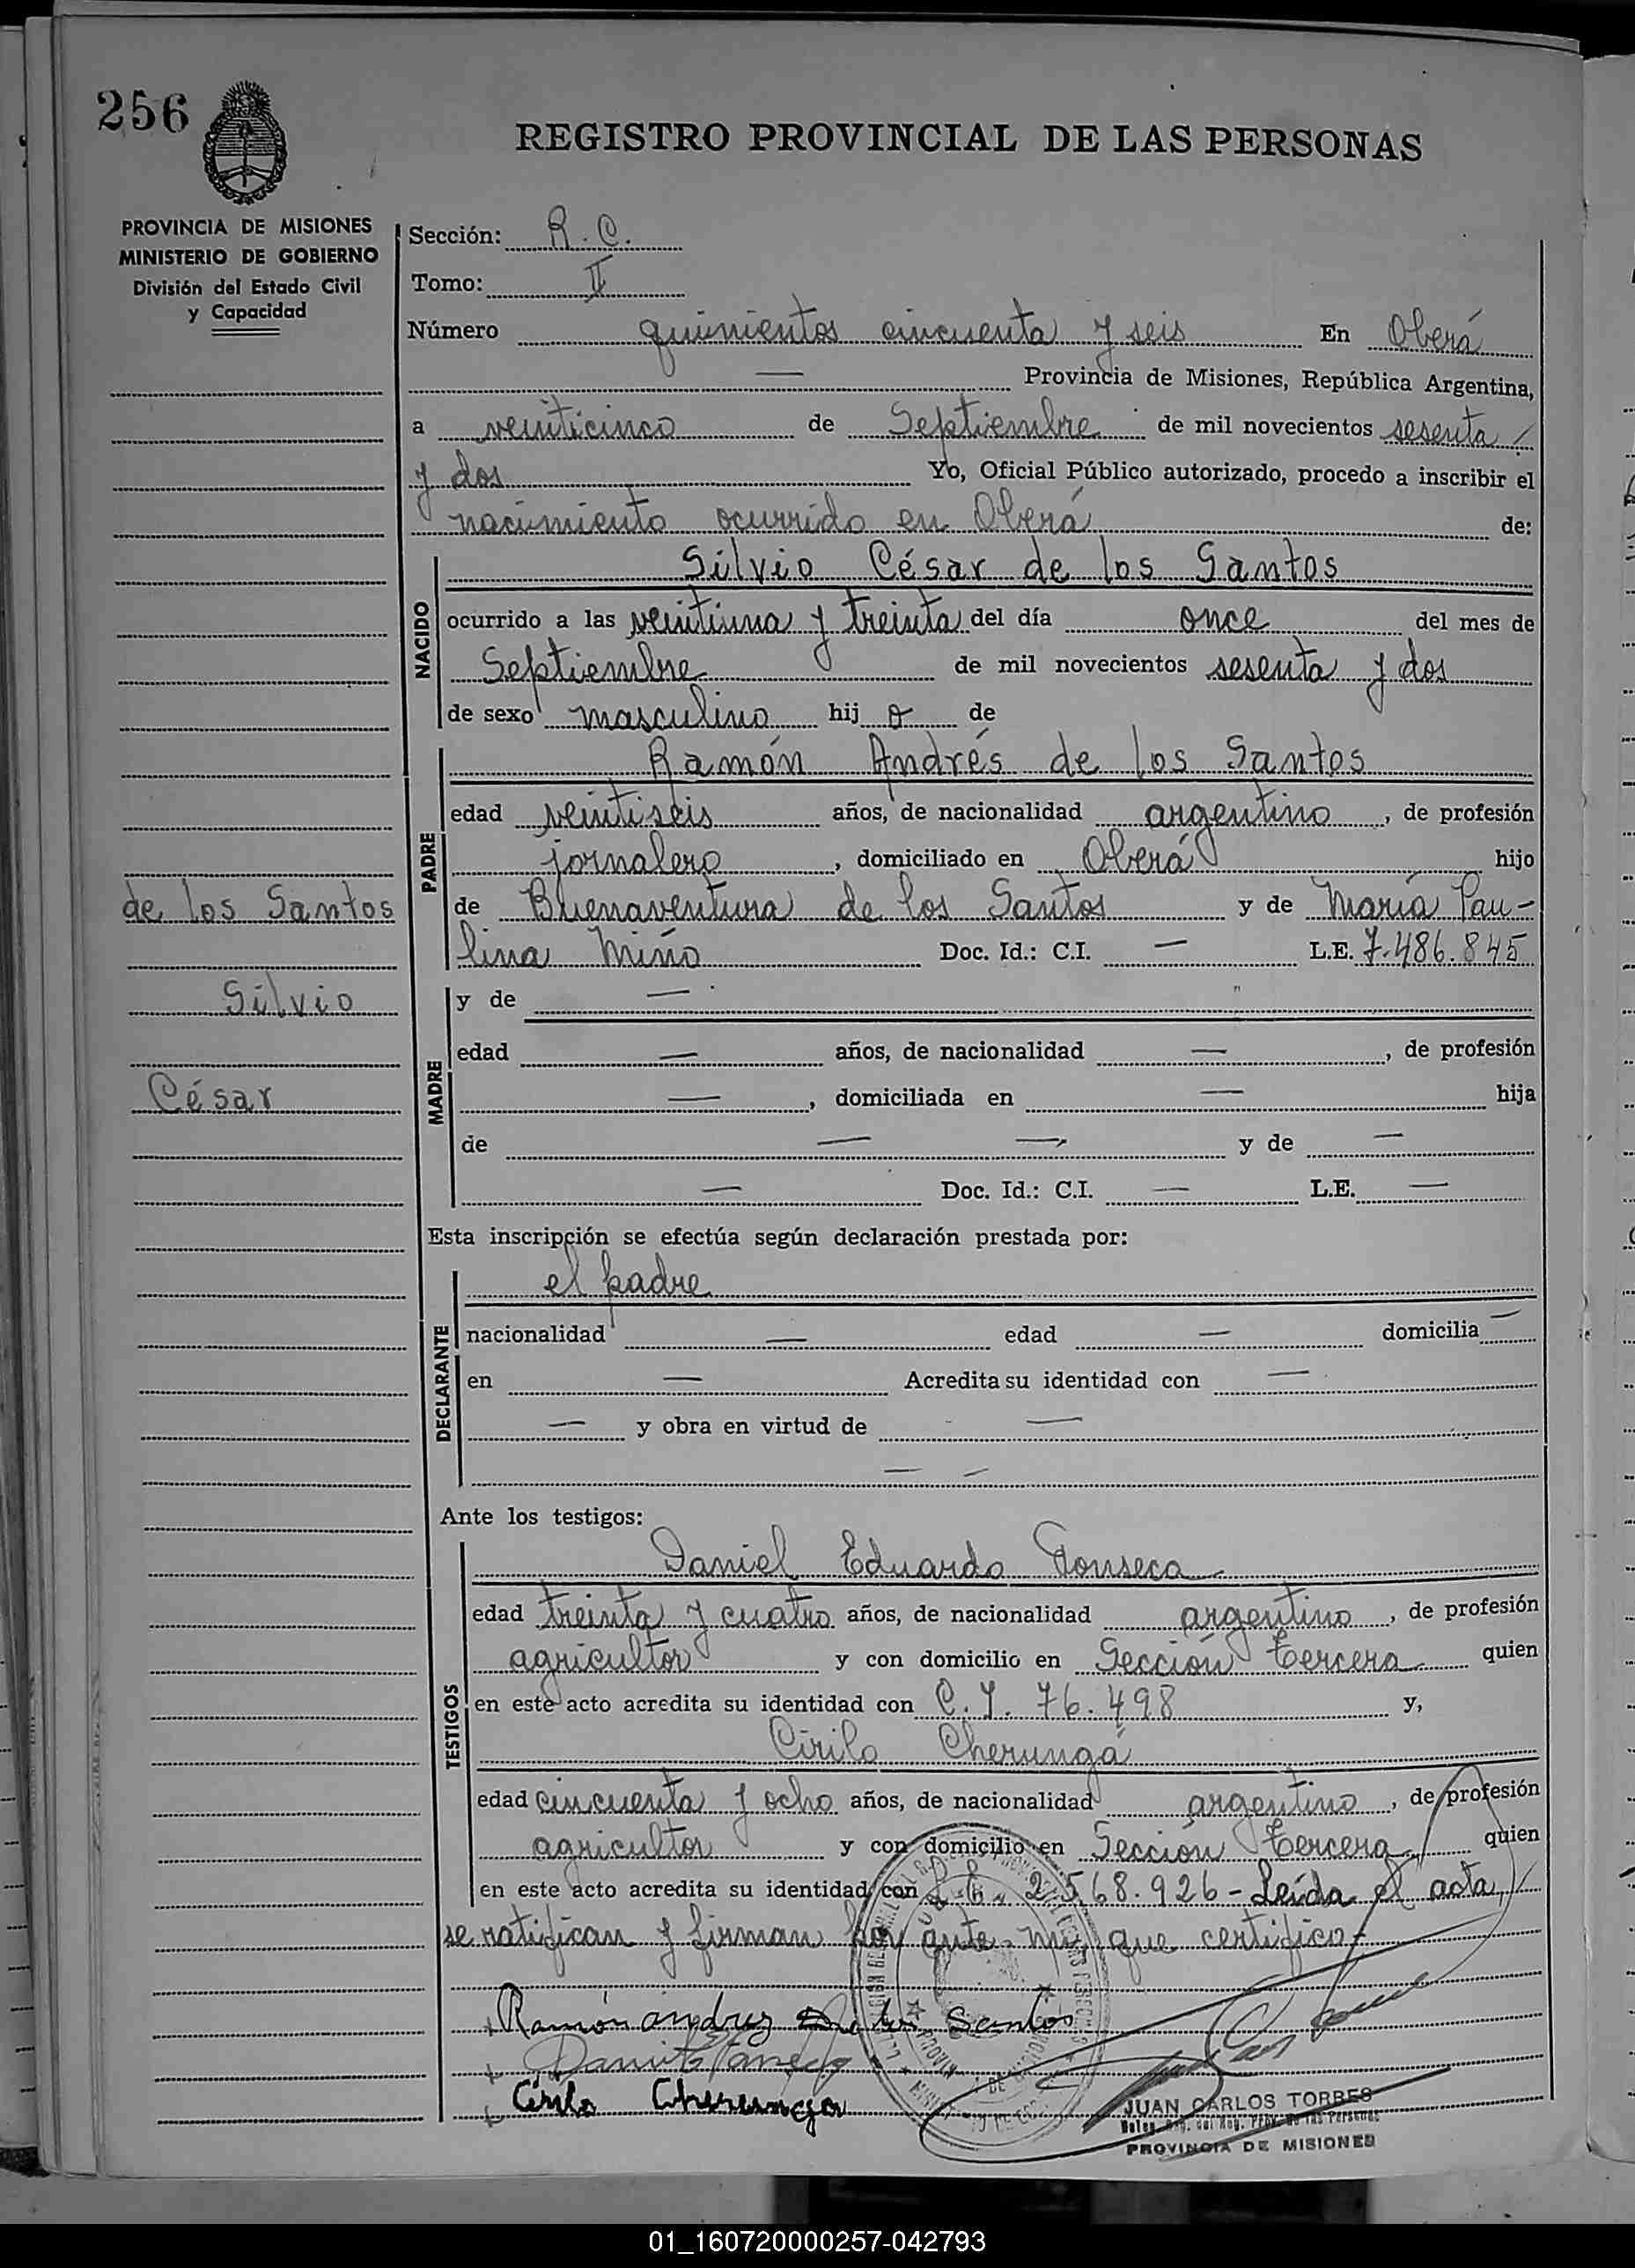 256
REGISTRO PROVINCIAL DE LAS PERSONAS
PROVINCIA DE MISIONES
MINISTERIO DE GOBIERNO
División del Estado Civil
y Capacidad
Sección: R. C.
Tomo: II
Número quinientos cincuenta y seis En Oberá
— Provincia de Misiones, República Argentina,
a veinticinco de Septiembre de mil novecientos sesenta
y dos Yo, Oficial Público autorizado, procedo a inscribir el
nacimiento ocurrido en Oberá de:
NACIDO
Silvio César de los Santos
ocurrido a las veintiuna y treinta del día once del mes de
Septiembre de mil novecientos sesenta y dos
de sexo masculino hij o de
PADRE
Ramón Andrés de los Santos
edad veintiseis años, de nacionalidad argentino, de profesión
jornalero, domiciliado en Oberá hijo
de Buenaventura de los Santos y de María Pau-
lina Miño Doc. Id.: C.I. — L.E. 7.486.845
de los Santos
Silvio
César
MADRE
y de —
edad — años, de nacionalidad —, de profesión
—, domiciliada en — hija
de — — y de —
— Doc. Id.: C.I. — L.E. —
Esta inscripción se efectúa según declaración prestada por:
DECLARANTE
el padre
nacionalidad — edad — domicilia —
en — Acredita su identidad con —
— y obra en virtud de —
— —
Ante los testigos:
TESTIGOS
Daniel Eduardo Fonseca
edad treinta y cuatro años, de nacionalidad argentino, de profesión
agricultor y con domicilio en Sección tercera quien
en este acto acredita su identidad con C. I. 76.498 y,
Cirilo Cherungá
edad cincuenta y ocho años, de nacionalidad argentino, de profesión
agricultor y con domicilio en Sección tercera quien
en este acto acredita su identidad con 2.568.926 - Leída el acta,
se ratifican y firman por ante mí, que certifico.
Ramón andrez de los Santos
Cirilo Cherunga
JUAN CARLOS TORRES
PROVINCIA DE MISIONES
01_160720000257-042793